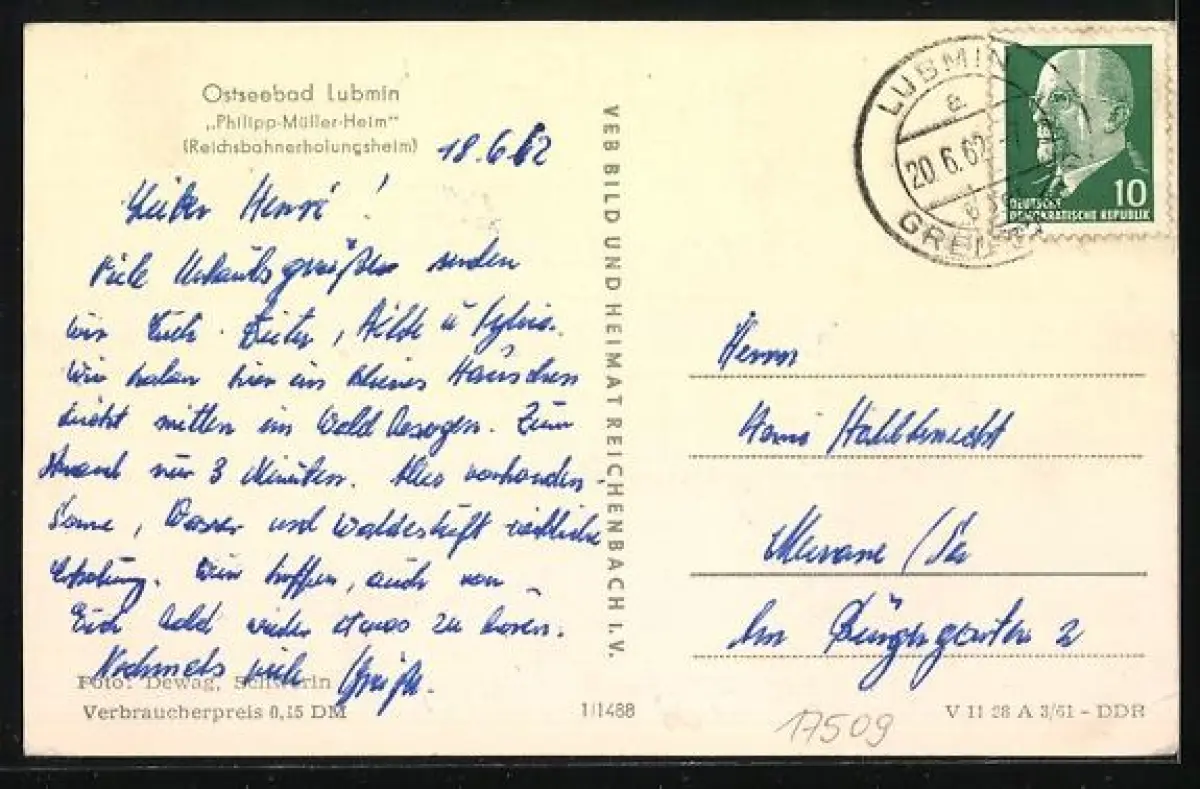 Ostseebad Lubmin
„Philipp-Müller-Heim"
(Reichsbahnerholungsheim)
18.6.62
Lieber Henri!
Viele Urlaubsgrüße senden
wir Euch. Dieter, Hilde u Sylvia.
Wir haben hier ein kleines Häuschen
dicht mitten im Wald bezogen. Zum
Strand nur 3 Minuten. Alles vorhanden
Sonne, Wasser und Waldesluft
Erholung. Wir hoffen, auch von
Euch bald wieder etwas zu hören.
Nochmals viele Grüße.
Foto: Dewag, Schwerin
Verbraucherpreis 0,15 DM
VEB BILD UND HEIMAT REICHENBACH I. V.
1/1488
LUBMIN
a
20.6.62
GREIFSW
DEUTSCHE
DEMOKRATISCHE REPUBLIK
10
Herrn
Meerane / Sa
Am Bürgergarten 2
17509
V 11 28 A 3/61 - DDR